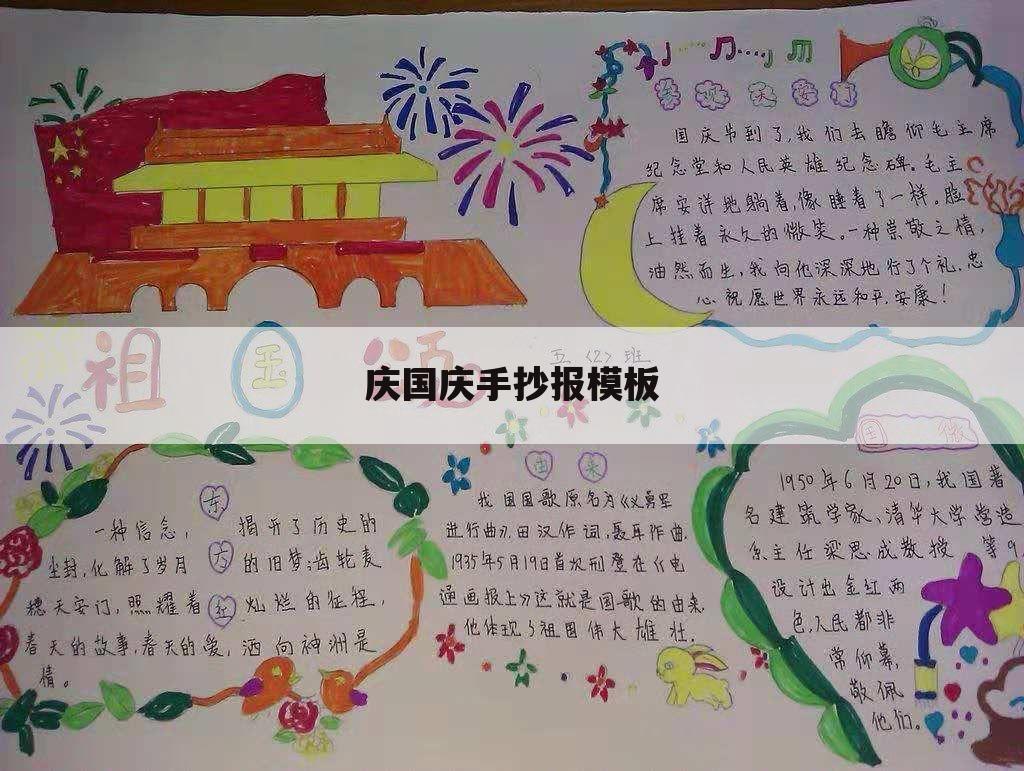 参观天安门
国庆节到了,我们去瞻仰毛主席
纪念堂和人民英雄纪念碑。毛主
席安详地躺着,像睡着了一样。脸
上挂着永久的微笑。一种崇敬之情,
油然而生,我向他深深地行了个礼.忠
心祝愿世界永远和平.安康!
祖国颂
五〈2〉班
庆国庆手抄报模板
东方红
一种信念,揭开了历史的
尘封,化解了岁月的旧梦;齿轮麦
穗天安门,照耀着灿烂的征程,
春天的故事,春天的爱,洒向神洲是
情。
由来
我国国歌原名为《义勇军
进行曲》,田汉作词,聂耳作曲.
1935年5月19日首次刑登在《电
通画报上》这就是国歌的由来.
他体现了祖国伟大雄壮.
国徽
1950年6月20日,我国著
名建筑学家、清华大学营造
系主任梁思成教授等9
设计出金红两
色,人民都非
常仰幕,
敬佩
他们。